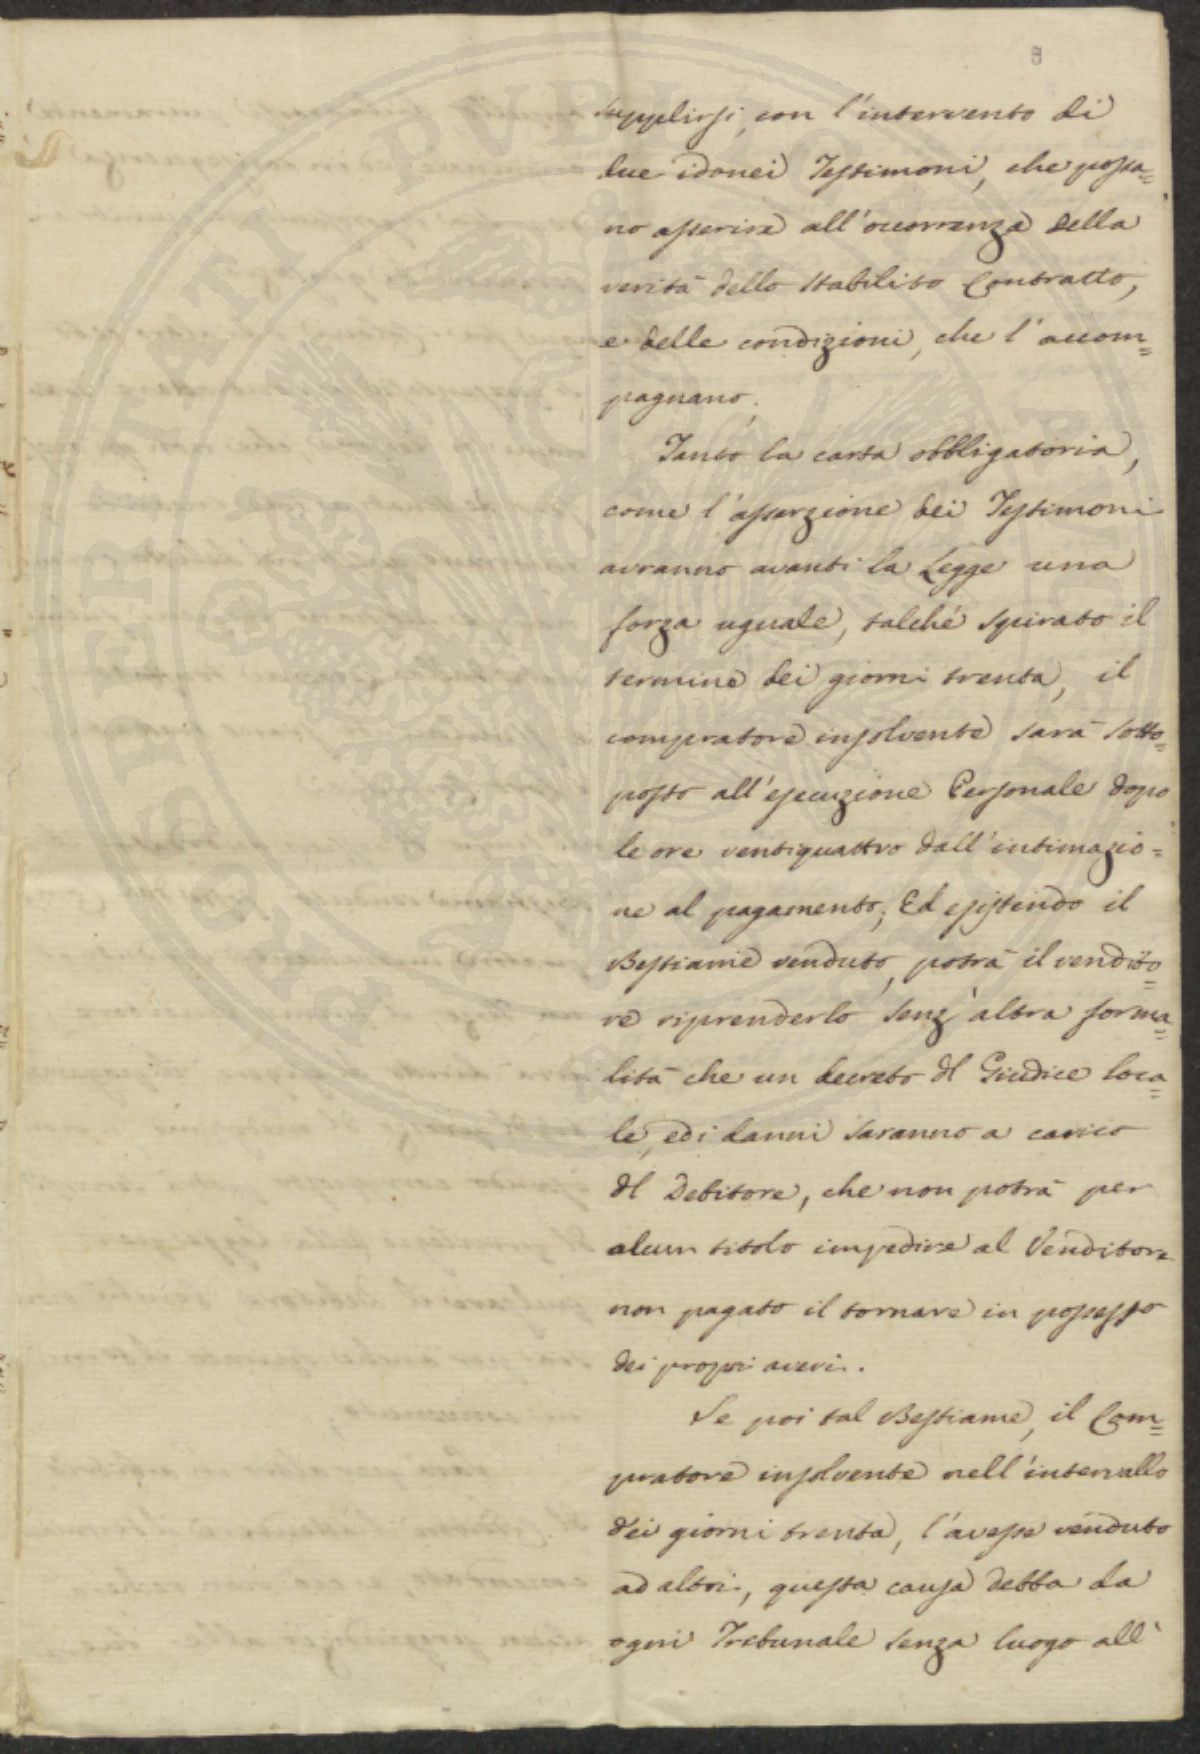 8
supplirsi, con l'intervento di
due idonei Testimoni, che possa=
no asserire all'occorrenza della
verità dello stabilito Contratto,
e delle condizioni, che l'accom=
pagnano.
Tanto la carta obbligatoria,
come l'asserzione dei Testimoni
avranno avanti la Legge una
forza uguale, talchè spirato il
termine dei giorni trenta, il
compratore insolvente sarà sotto=
posto all'esecuzione Personale dopo
le ore ventiquattro dall'intimazio=
ne al pagamento; Ed esistendo il
Bestiame venduto, potrà il vendito=
re riprenderlo senz'altra forma=
lità che un decreto dl Giudice loca=
le, ed i danni saranno a carico
dl Debitore, che non potrà per
alcun titolo impedire al Venditore
non pagato il tornare in possesso
dei propri averi.
Se poi tal Bestiame, il Com=
pratore insolvente nell'intervallo
dei giorni trenta, l'avesse venduto
ad altri, questa causa debba da
ogni Tribunale senza luogo all'